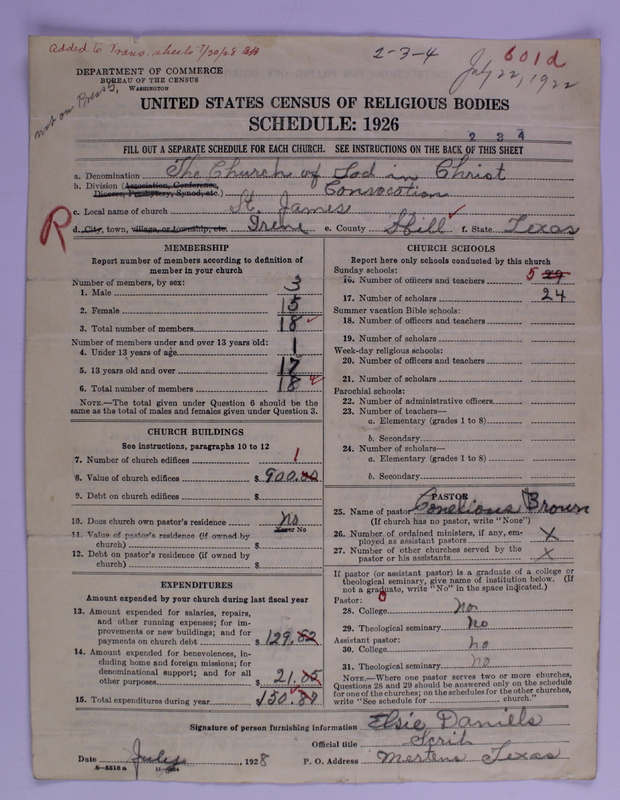 Added to Trans. sheets 7/30/28
2-3-4
601d
July 22, 1922
not on Press.
DEPARTMENT OF COMMERCE
BUREAU OF THE CENSUS
WASHINGTON
UNITED STATES CENSUS OF RELIGIOUS BODIES
SCHEDULE: 1926
2 3 4
FILL OUT A SEPARATE SCHEDULE FOR EACH CHURCH. SEE INSTRUCTIONS ON THE BACK OF THIS SHEET
a. Denomination The Church of God in Christ
b. Division (Association, Conference, Diocese, Presbytery, Synod, etc.) Convocation
c. Local name of church St. James
R
d. City, town, village, or township, etc. Irene e. County Hill f. State Texas
MEMBERSHIP
Report number of members according to definition of
member in your church
Number of members, by sex:
1. Male 3
2. Female 15
3. Total number of members 18
Number of members under and over 13 years old:
4. Under 13 years of age 1
5. 13 years old and over 17
6. Total number of members 18
NOTE.—The total given under Question 6 should be the
same as the total of males and females given under Question 3.
CHURCH BUILDINGS
See instructions, paragraphs 10 to 12
7. Number of church edifices 1
8. Value of church edifices $ 900.00
9. Debt on church edifices $
10. Does church own pastor's residence No
Yes or No
11. Value of pastor's residence (if owned by
church) $
12. Debt on pastor's residence (if owned by
church) $
EXPENDITURES
Amount expended by your church during last fiscal year
13. Amount expended for salaries, repairs,
and other running expenses; for im-
provements or new buildings; and for
payments on church debt $ 129.82
14. Amount expended for benevolences, in-
cluding home and foreign missions; for
denominational support; and for all
other purposes $ 21.05
15. Total expenditures during year $ 150.87
CHURCH SCHOOLS
Report here only schools conducted by this church
Sunday schools:
16. Number of officers and teachers 5 29
17. Number of scholars 24
Summer vacation Bible schools:
18. Number of officers and teachers
19. Number of scholars
Week-day religious schools:
20. Number of officers and teachers
21. Number of scholars
Parochial schools:
22. Number of administrative officers
23. Number of teachers—
a. Elementary (grades 1 to 8)
b. Secondary
24. Number of scholars—
a. Elementary (grades 1 to 8)
b. Secondary
PASTOR
25. Name of pastor Conelious Brown
(If church has no pastor, write "None")
26. Number of ordained ministers, if any, em-
ployed as assistant pastors X
27. Number of other churches served by the
pastor or his assistants X
If pastor (or assistant pastor) is a graduate of a college or
theological seminary, give name of institution below. (If
not a graduate, write "No" in the space indicated.)
Pastor: 0
28. College No
29. Theological seminary No
Assistant pastor:
30. College no
31. Theological seminary no
NOTE.—Where one pastor serves two or more churches,
Questions 28 and 29 should be answered only on the schedule
for one of the churches; on the schedules for the other churches,
write "See schedule for church."
Signature of person furnishing information Elsie Daniels
Official title Scrib
Date July, 1928 P. O. Address Mertens Texas
8-5515a 11-9184